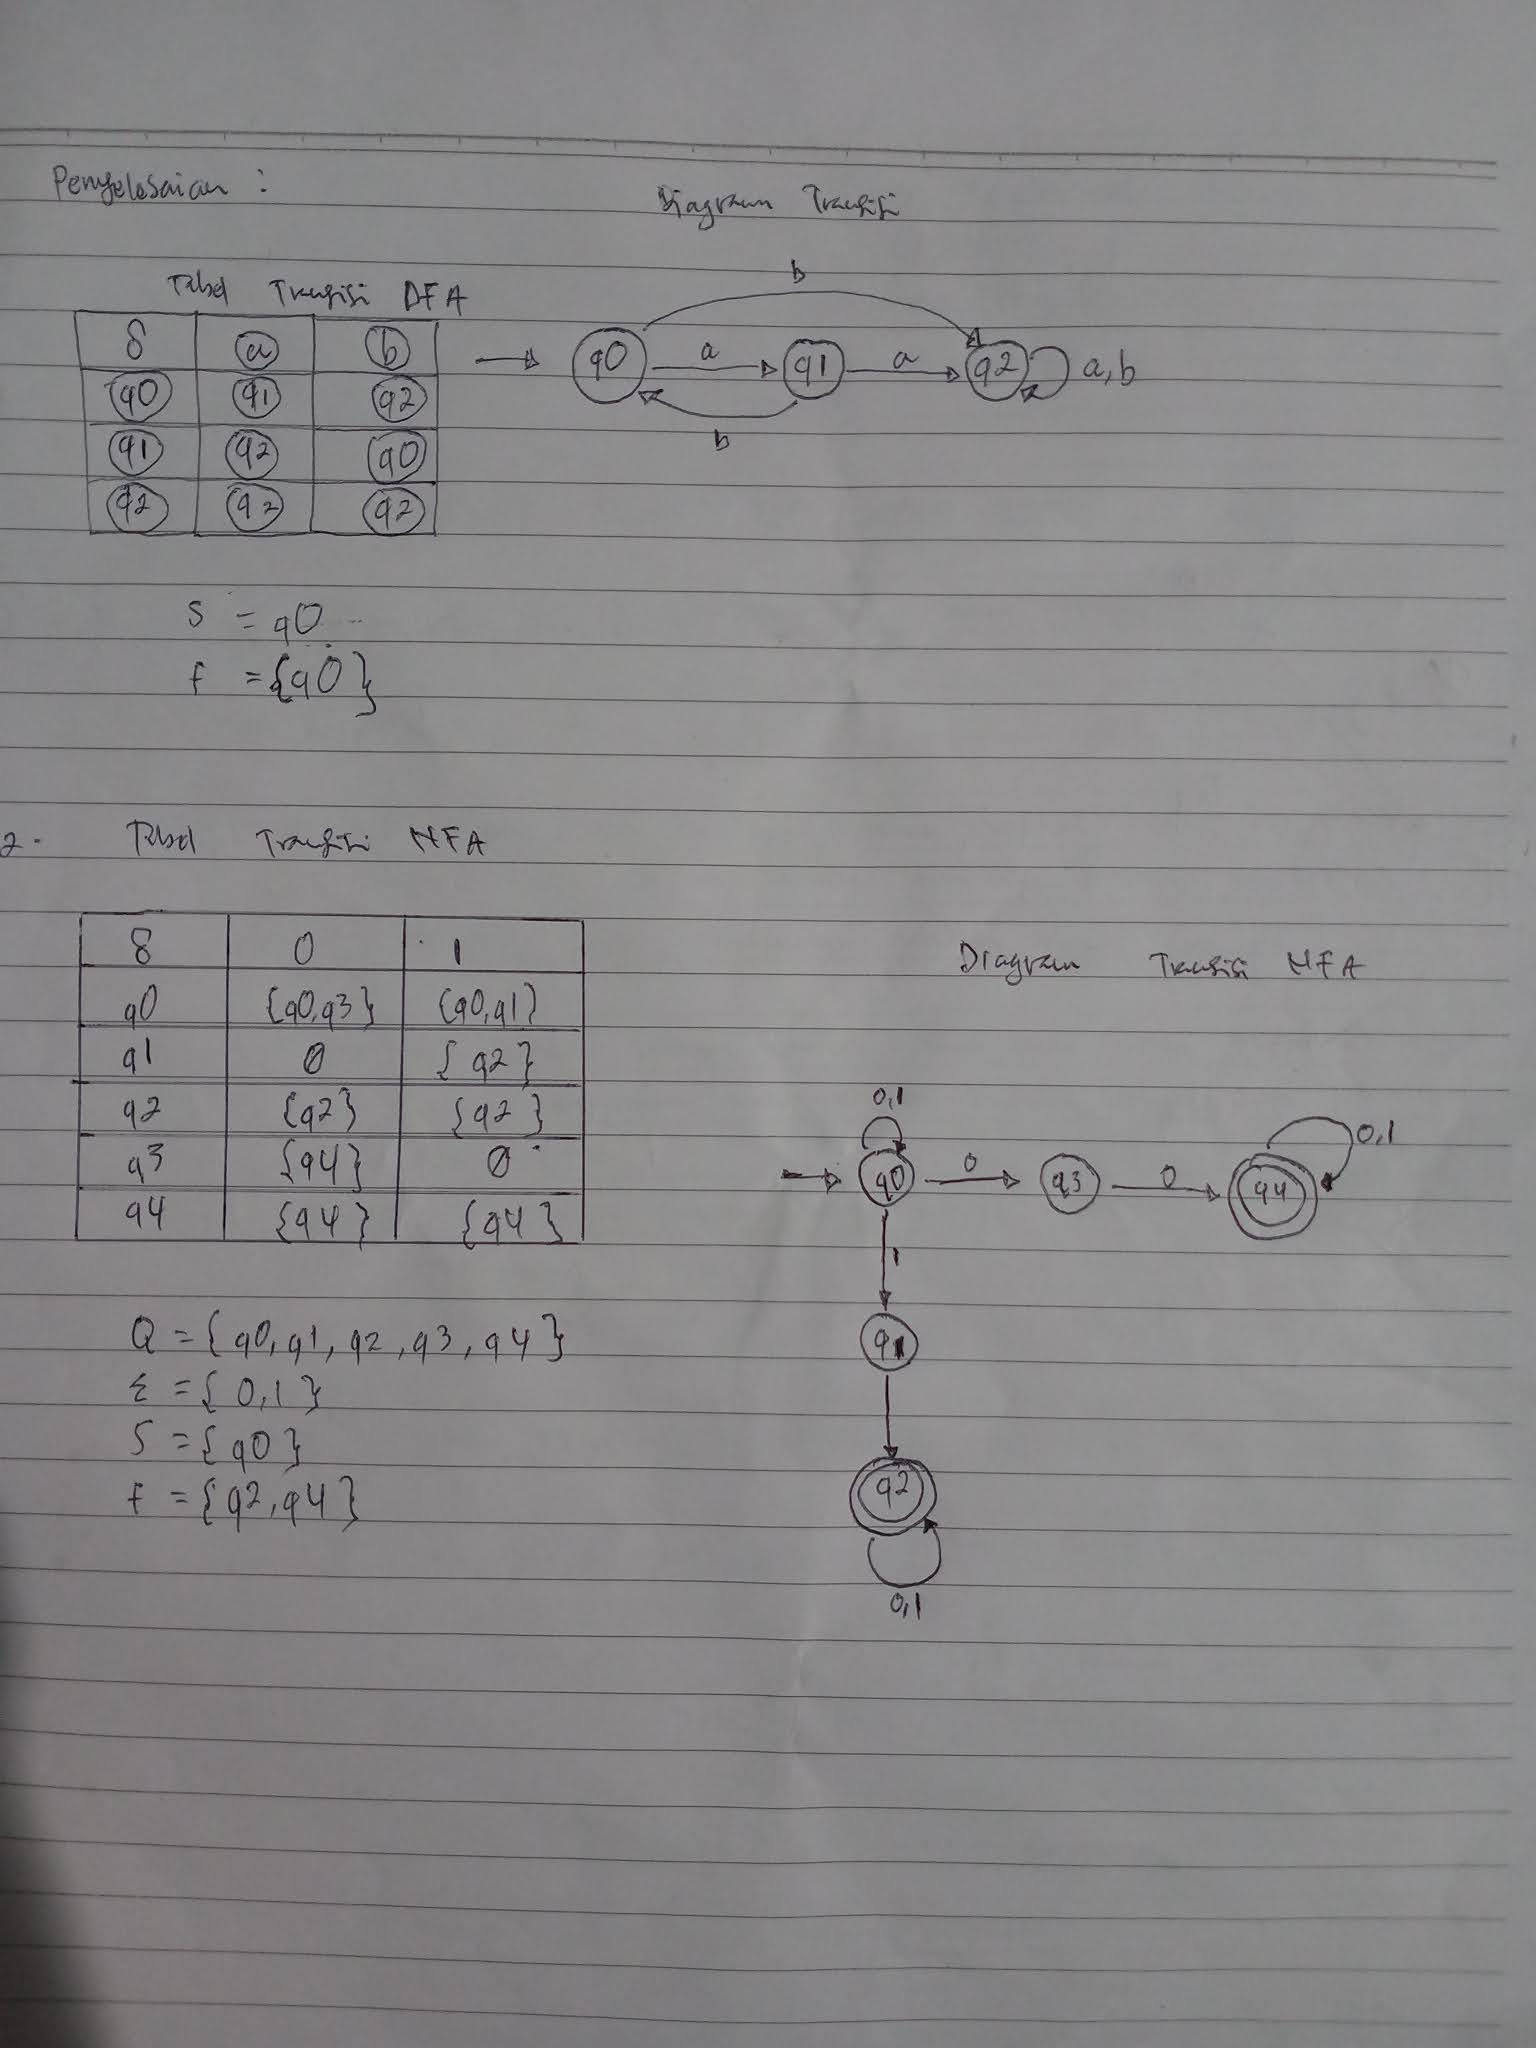 Penyelesaian :
Diagram Transisi
Tabel Transisi DFA
δ a b
q0 q1 q2
q1 q2 q0
q2 q2 q2
b
q0 a q1 a q2 a,b
b
S = q0
F = {q0}
2. Tabel Transisi NFA
δ 0 1
q0 {q0,q3} {q0,q1}
q1 Ø {q2}
q2 {q2} {q2}
q3 {q4} Ø
q4 {q4} {q4}
Q = {q0, q1, q2, q3, q4}
Σ = {0,1}
S = {q0}
F = {q2, q4}
Diagram Transisi NFA
0,1
0,1
q0 0 q3 0 q4
1
q1
q2
0,1